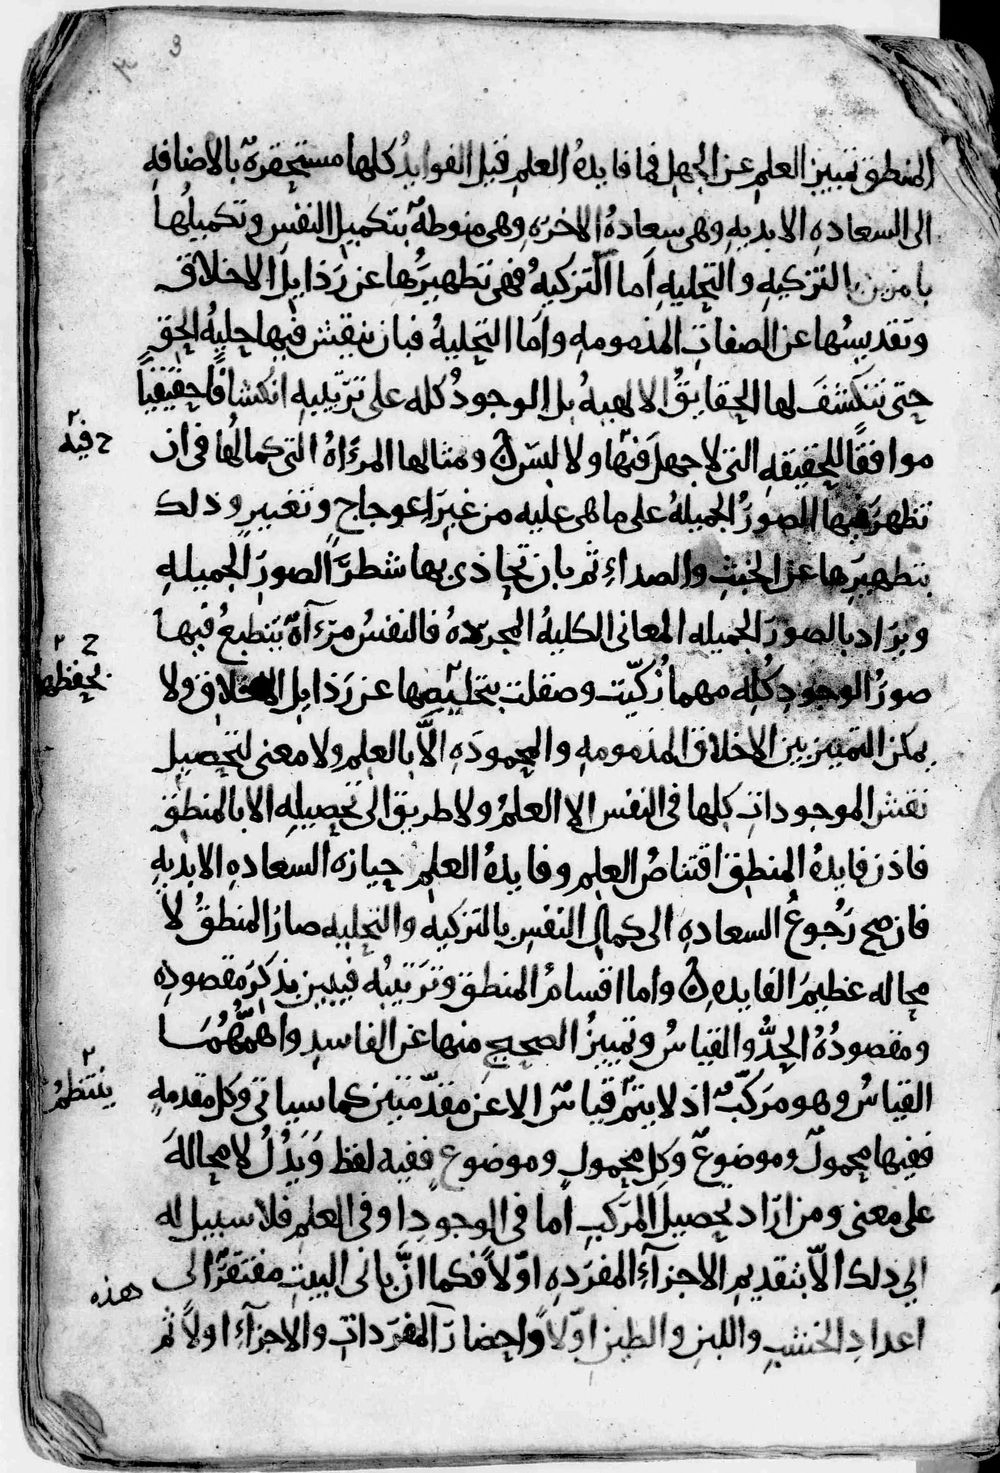 المنطق تمييز العلم عن الجهل فما فايدة العلم قيل الفوايد كلها مستحقرة بالاضافه
الى السعاده الابديه وهى سعادة الاخره وهى منوطة بتكميل النفس وتكميلها
بامرين بالتزكيه والتحليه اما التزكية فهى تطهيرها عن رذايل الاخلاق
وتقديسها عن الصفات المذمومه واما التحلية فبان ينقش فيها حلية الحق
حتى تنكشف لها الحقايق الالهية بل الوجود كله على ترتيبه انكشافا حقيقيا
موافقا للحقيقه التى لا جهل فيها ولا لبس ومثالها المرءاة التى كمالها فى ان
تظهر فيها الصور الجميلة على ما هى عليه من غير اعوجاج وتغيير وذلك
بتطهيرها عن الخبث والصداء ثم بان تحاذى بها شطر الصور الجميله
ويراد بالصور الجميله المعانى الكلية المجردة فالنفس مرءآة تنطبع فيها
صور الوجود كله مهما زكيت وصقلت بتخليصها عن رذايل الاخلاق ولا
يمكن التمييز بين الاخلاق المذمومه والمحموده الا بالعلم ولا معنى لتحصيل
نقش الموجودات كلها فى النفس الا العلم ولا طريق الى تحصيله الا بالمنطق
فاذن فايدة المنطق اقتناص العلم وفايدة العلم حيازة السعاده الابديه
فان صح رجوع السعاده الى كمال النفس بالتزكيه والتحليه صار المنطق لا
محاله عظيم الفايده واما اقسام المنطق وترتيبه فيبين بذكر مقصوده
ومقصوده الحد والقياس وتمييز الصحيح منها عن الفاسد واهمهما
القياس وهو مركب اذ لا ينتم قياس الا عن مقدمتين كما سياتى وكل مقدمه
ففيها محمول وموضوع وكل محمول وموضوع ففيه لفظ ويدل لا محالة
على معنى ومن اراد تحصيل المركب اما فى الوجود او فى العلم فلا سبيل له
الى ذلك الا بتقديم الاجزآء المفرده اولا فكما ان بانى البيت مفتقر الى
اعداد الخشب واللبن والطين اولا واحضار المفردات والاجزآء اولا ثم
ح فيه
ح
يحفظها
ينتظم
هذه